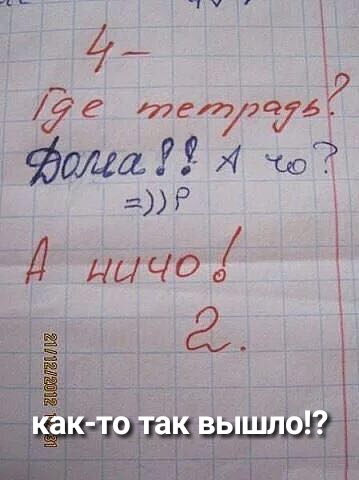 4-
Где тетрадь?
Дома!! А чо?
=))P
А ничо!
2.
21/12/2012
как-то так вышло!?